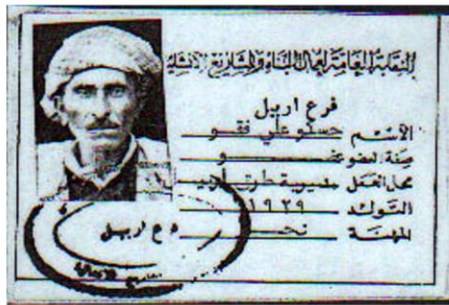 النقابة العامة لعمال البناء والمشاريع الانشائية
فرع اربيل
الأسم حسو علي فقو
صفة العضو عضو
محل العمل مديرية طرق اربيل
التولد ١٩٢٩
المهنة
فرع اربيل